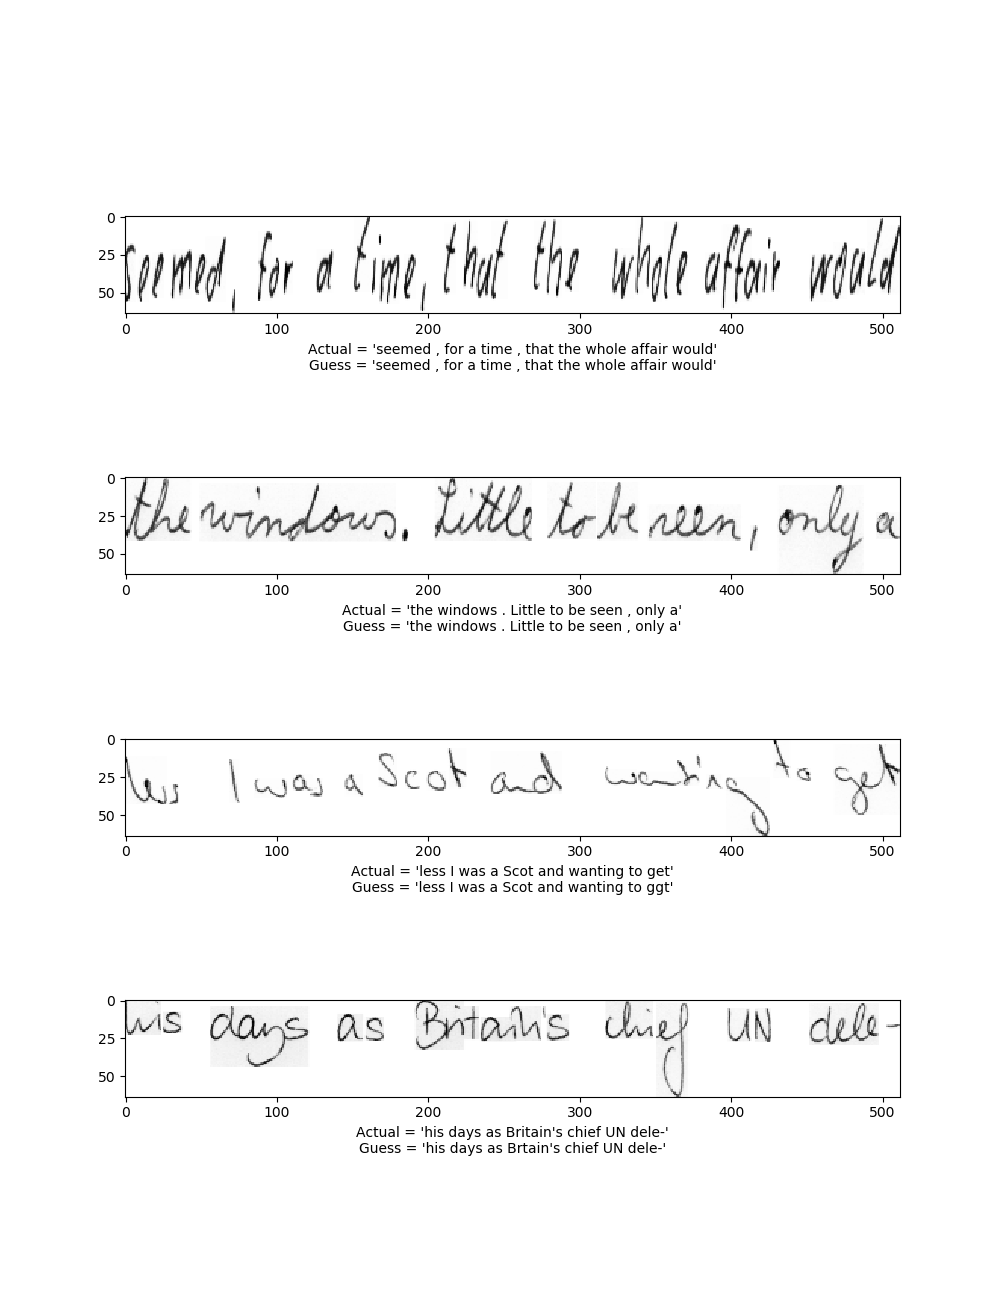 0
25
50
seemed, for a time, that the whole affair would
0 100 200 300 400 500
Actual = 'seemed , for a time , that the whole affair would'
Guess = 'seemed , for a time , that the whole affair would'
0
25
50
the windows. Little to be seen, only a
0 100 200 300 400 500
Actual = 'the windows . Little to be seen , only a'
Guess = 'the windows . Little to be seen , only a'
0
25
50
less I was a Scot and wanting to get
0 100 200 300 400 500
Actual = 'less I was a Scot and wanting to get'
Guess = 'less I was a Scot and wanting to ggt'
0
25
50
his days as Britain's chief UN dele-
0 100 200 300 400 500
Actual = 'his days as Britain's chief UN dele-'
Guess = 'his days as Brtain's chief UN dele-'